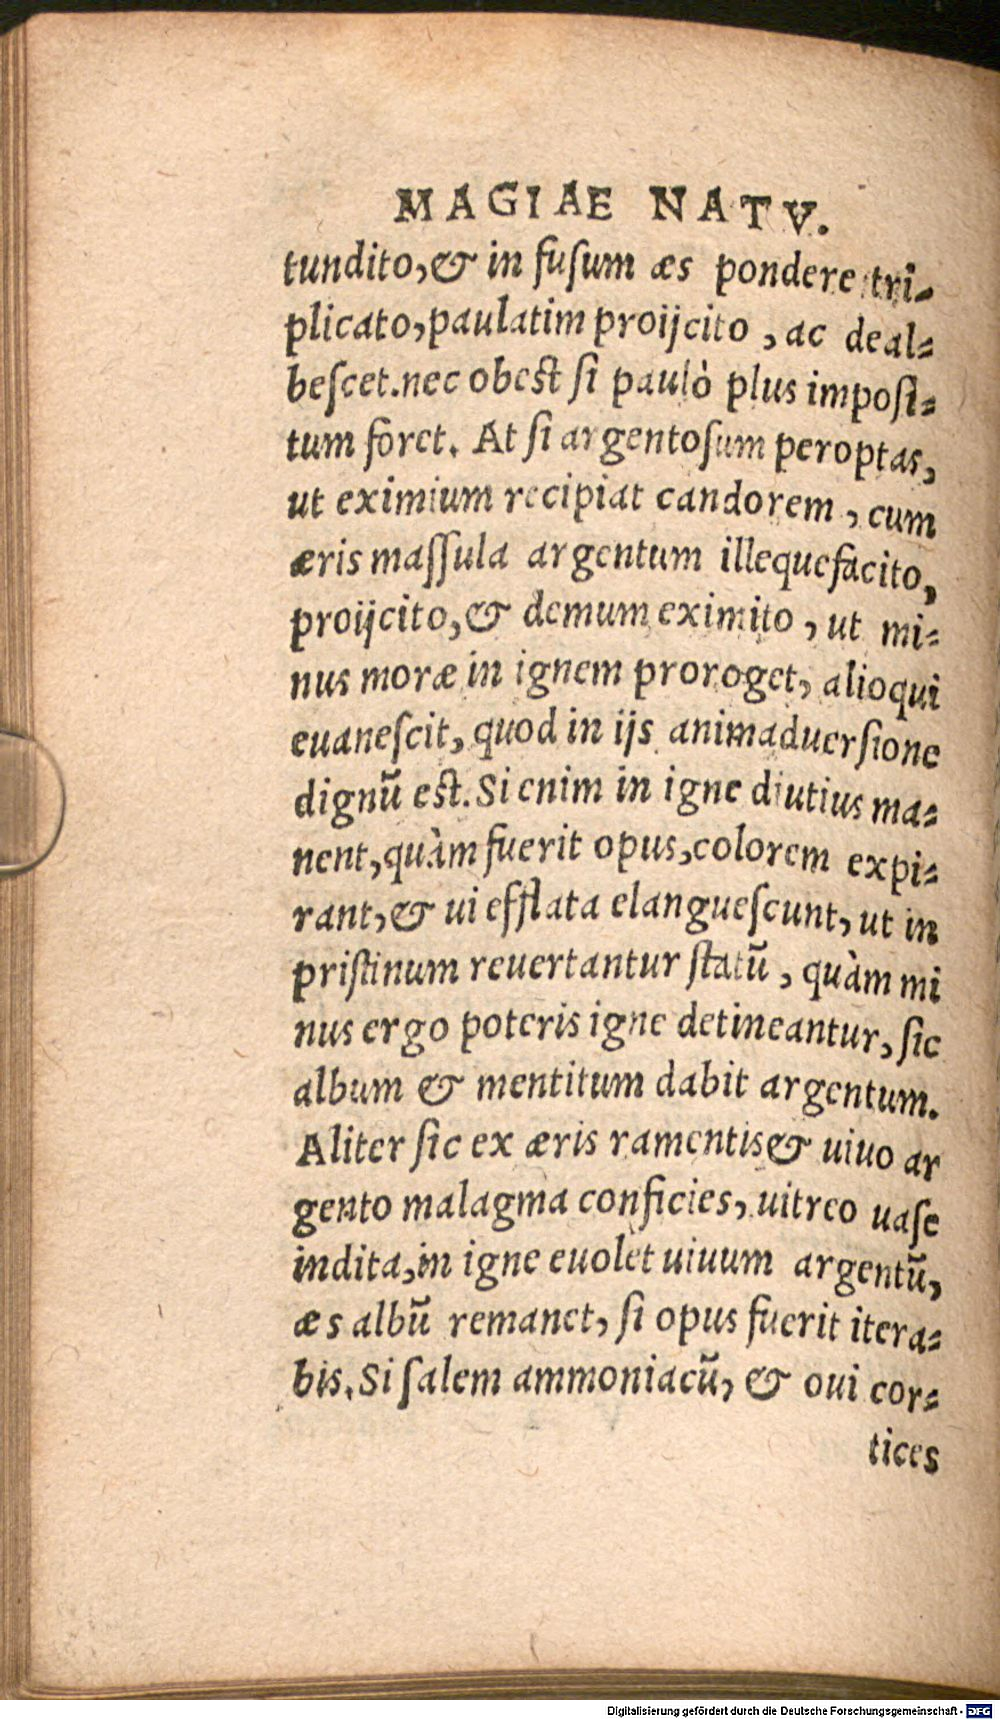 MAGIAE NATV.
tundito, & in fuſum æs pondere tri-
plicato, paulatim proijcito, ac deal-
beſcet. nec obeſt ſi paulò plus impoſi-
tum foret. At ſi argentoſum peroptas,
ut eximium recipiat candorem, cum
æris maſſula argentum illequefacito,
proijcito, & demum eximito, ut mi-
nus moræ in ignem proroget, alioqui
euaneſcit, quod in ijs animaduerſione
dignũ eſt. Si enim in igne diutius ma-
nent, quàm fuerit opus, colorem expi-
rant, & ui efflata elangueſcunt, ut in
priſtinum reuertantur ſtatũ, quàm mi
nus ergo poteris igne detineantur, ſic
album & mentitum dabit argentum.
Aliter ſic ex æris ramentis & uiuo ar
gento malagma conficies, uitreo uaſe
indita, in igne euolet uiuum argentũ,
æs albũ remanet, ſi opus fuerit itera-
bis. Si ſalem ammoniacũ, & oui cor-
tices
Digitalisierung gefördert durch die Deutsche Forschungsgemeinschaft - DFG